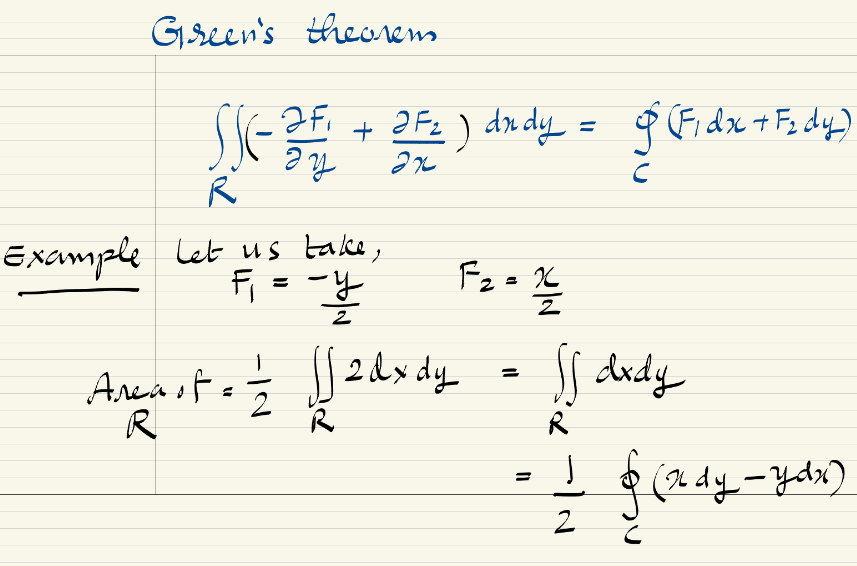 Green's theorem
∬_R (-∂F₁/∂y + ∂F₂/∂x) dx dy = ∮_C (F₁ dx + F₂ dy)
Example Let us take,
F₁ = -y/2 F₂ = x/2
Area of R = 1/2 ∬_R 2 dx dy = ∬_R dxdy
= 1/2 ∮_C (x dy - y dx)